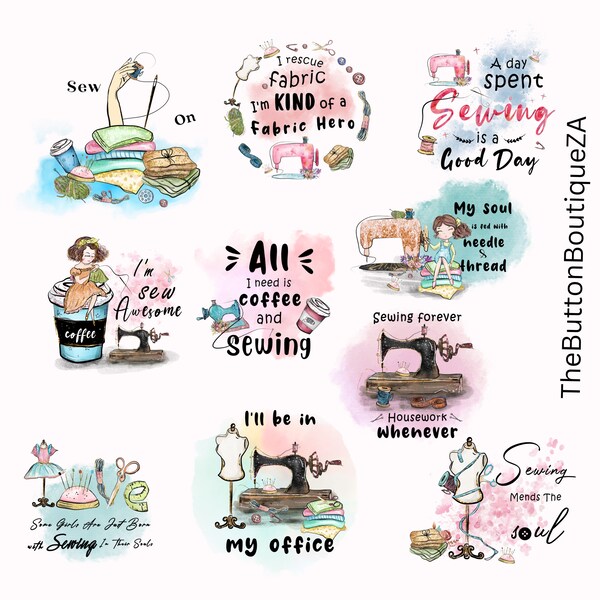 Sew
On
I rescue
fabric
I'm KIND of a
Fabric Hero
A day
spent
Sewing
is a
Good Day
I'm
sew
Awesome
coffee
All
I need is
coffee
and
Sewing
My soul
is fed with
needle
&
thread
Sewing forever
Housework
whenever
Some Girls Are Just Born
with Sewing In Their Souls
I'll be in
my office
Sewing
Mends The
soul
TheButtonBoutiqueZA